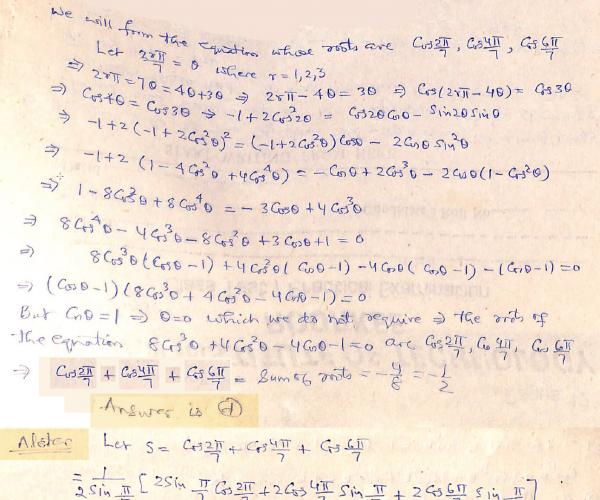 We will form the equation whose roots are Cos 2π/7, Cos 4π/7, Cos 6π/7
Let 2rπ/7 = θ where r = 1,2,3
⇒ 2rπ = 7θ = 4θ+3θ ⇒ 2rπ - 4θ = 3θ ⇒ Cos(2rπ-4θ) = Cos3θ
⇒ Cos4θ = Cos3θ ⇒ -1+2Cos²2θ = Cos2θCosθ - Sin2θSinθ
⇒ -1+2(-1+2Cos²θ)² = (-1+2Cos²θ)Cosθ - 2CosθSin²θ
⇒ -1+2(1-4Cos²θ+4Cos⁴θ) = -Cosθ+2Cos³θ - 2Cosθ(1-Cos²θ)
⇒ 1-8Cos²θ+8Cos⁴θ = -3Cosθ+4Cos³θ
⇒ 8Cos⁴θ - 4Cos³θ - 8Cos²θ + 3Cosθ + 1 = 0
⇒ 8Cos³θ(Cosθ-1) + 4Cos²θ(Cosθ-1) - 4Cosθ(Cosθ-1) - (Cosθ-1) = 0
⇒ (Cosθ-1)(8Cos³θ + 4Cos²θ - 4Cosθ - 1) = 0
But Cosθ = 1 ⇒ θ=0 which we do not require ⇒ the roots of
the equation 8Cos³θ + 4Cos²θ - 4Cosθ - 1 = 0 are Cos 2π/7, Cos 4π/7, Cos 6π/7
⇒ Cos 2π/7 + Cos 4π/7 + Cos 6π/7 = Sum of roots = -4/8 = -1/2
Answer is d
Alster Let S = Cos 2π/7 + Cos 4π/7 + Cos 6π/7
= 1/2Sin π [2Sin π/7 Cos 2π/7 + 2Cos 4π/7 Sin π/7 + 2Cos 6π/7 Sin π]